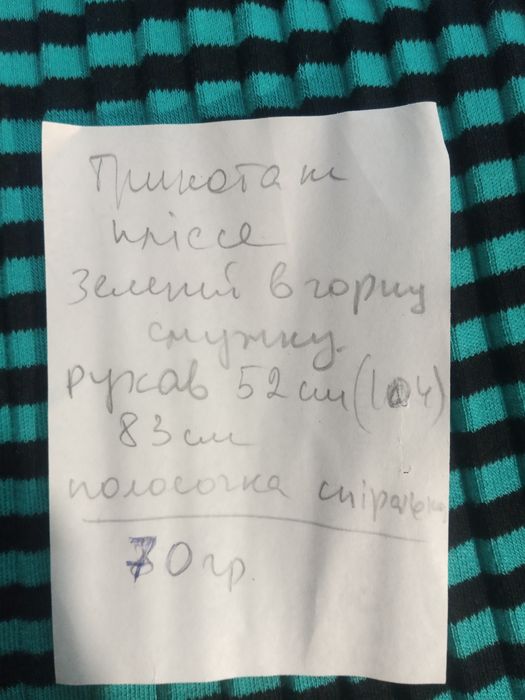 Трикотаж
плісе
Зелений в горну
смужку.
рукав 52 см (104)
83 см
полосочка спіральна
70 гр.